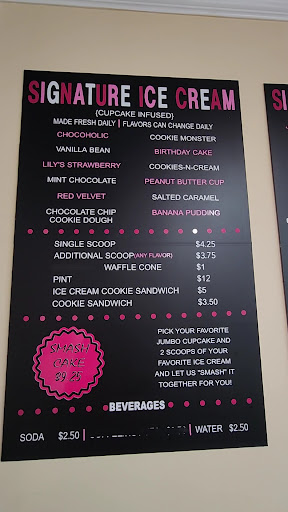 SIGNATURE ICE CREAM
(CUPCAKE INFUSED)
MADE FRESH DAILY | FLAVORS CAN CHANGE DAILY
CHOCOHOLIC
VANILLA BEAN
LILY'S STRAWBERRY
MINT CHOCOLATE
RED VELVET
CHOCOLATE CHIP
COOKIE DOUGH
COOKIE MONSTER
BIRTHDAY CAKE
COOKIES-N-CREAM
PEANUT BUTTER CUP
SALTED CARAMEL
BANANA PUDDING
SINGLE SCOOP $4.25
ADDITIONAL SCOOP(ANY FLAVOR) $3.75
WAFFLE CONE $1
PINT $12
ICE CREAM COOKIE SANDWICH $5
COOKIE SANDWICH $3.50
SMASH
CAKE
$9.25
PICK YOUR FAVORITE
JUMBO CUPCAKE AND
2 SCOOPS OF YOUR
FAVORITE ICE CREAM
AND LET US "SMASH" IT
TOGETHER FOR YOU!
BEVERAGES
SODA $2.50 | | WATER $2.50
SI